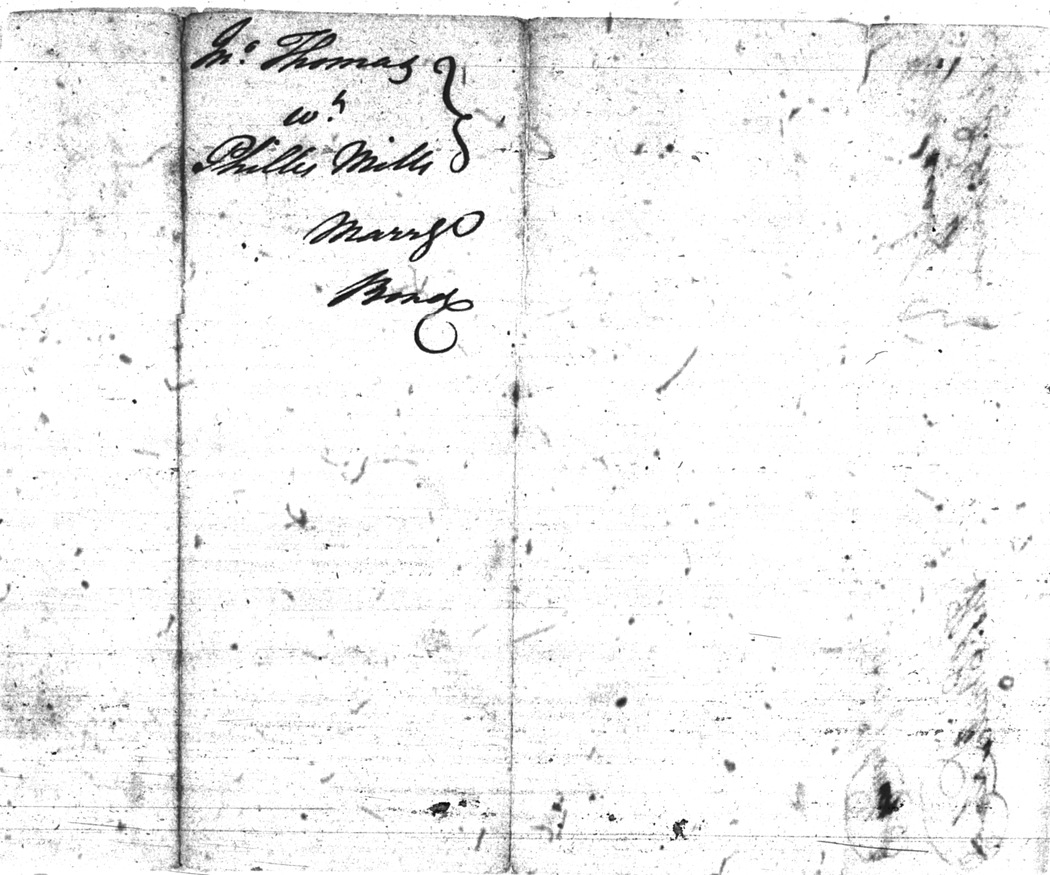 Jno. Thomas
wh
Phillis Mills
Marrg
Bond